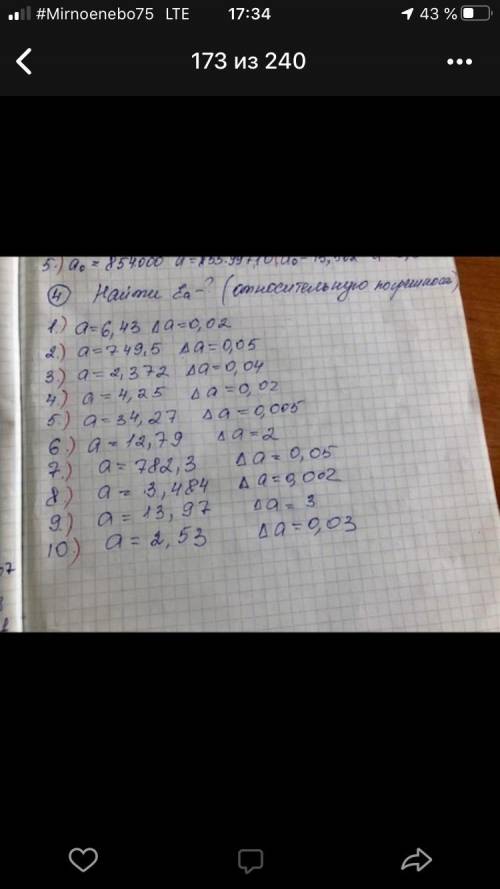 #Mirnoenebo75 LTE 17:34 43 %
173 из 240
5.) a₀ = 854000
④ Найти Ɛa - ? (относительную погрешность)
1.) a = 6,43 Δa = 0,02
2.) a = 749,5 Δa = 0,05
3.) a = 2,372 Δa = 0,04
4.) a = 4,25 Δa = 0,02
5.) a = 34,27 Δa = 0,005
6.) a = 12,79 Δa = 2
7.) a = 782,3 Δa = 0,05
8) a = 3,484 Δa = 0,002
9) a = 13,97 Δa = 3
10.) a = 2,53 Δa = 0,03